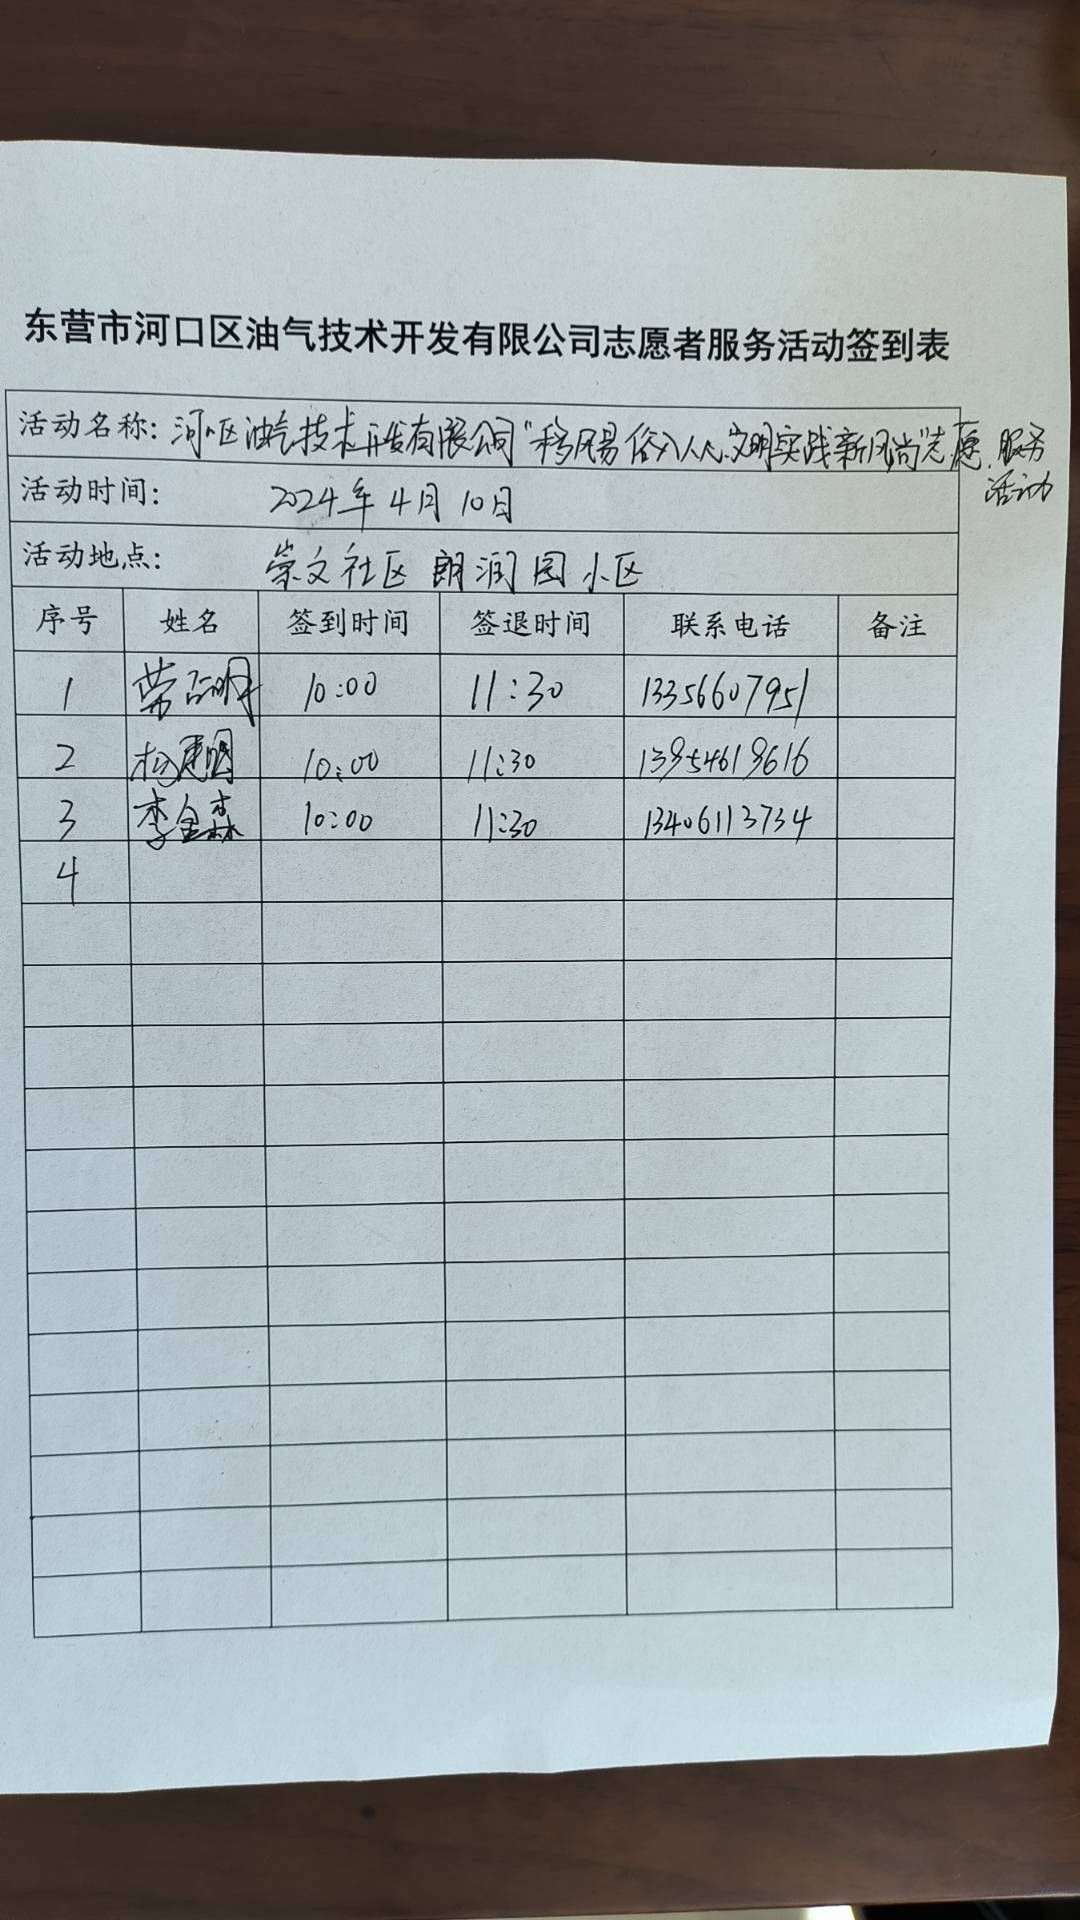 东营市河口区油气技术开发有限公司志愿者服务活动签到表
活动名称: 河口区油气技术开发有限公司"移风易俗入人心 文明实践新风尚"志愿服务
活动
活动时间: 2024年4月10日
活动地点: 崇文社区 朗润园小区
序号 姓名 签到时间 签退时间 联系电话 备注
1 10:00 11:30 13356607951
2 10:00 11:30 13954619616
3 李金森 10:00 11:30 13406113734
4